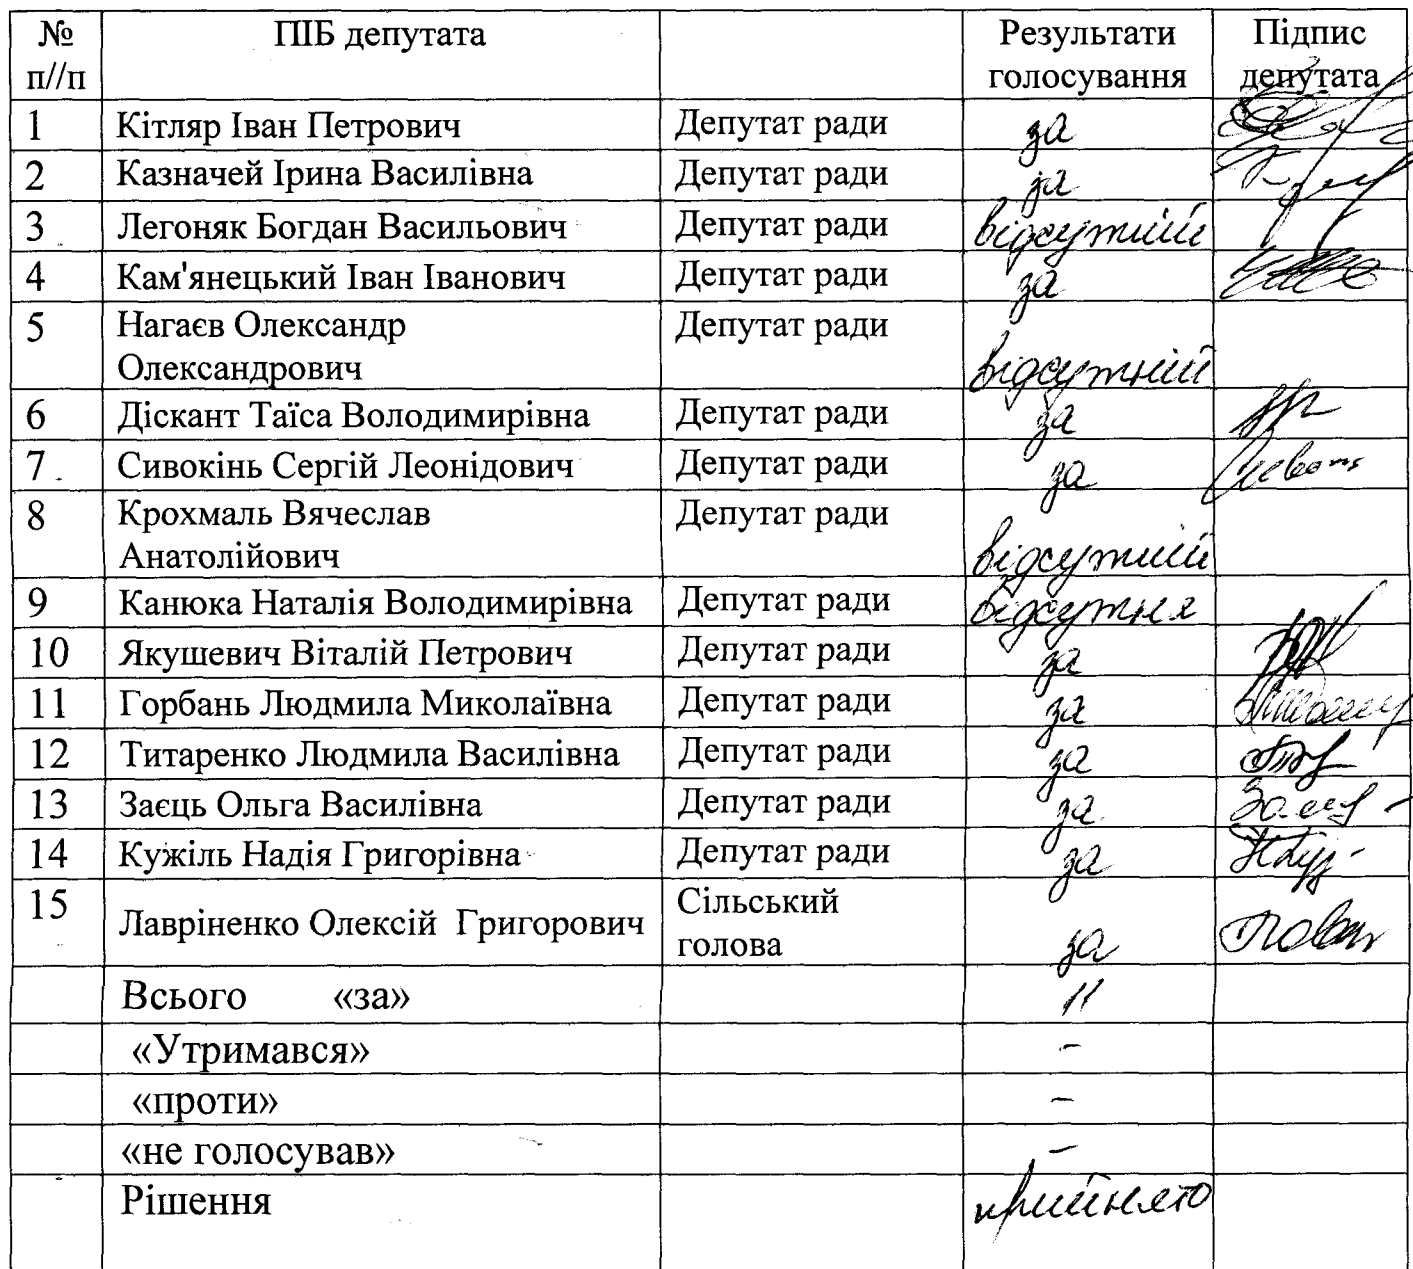 № ПІБ депутата Результати Підпис
п//п голосування депутата
1 Кітляр Іван Петрович Депутат ради за
2 Казначей Ірина Василівна Депутат ради за
3 Легоняк Богдан Васильович Депутат ради відсутній
4 Кам'янецький Іван Іванович Депутат ради за
5 Нагаєв Олександр Депутат ради
Олександрович відсутній
6 Діскант Таїса Володимирівна Депутат ради за
7 Сивокінь Сергій Леонідович Депутат ради за
8 Крохмаль Вячеслав Депутат ради
Анатолійович відсутній
9 Канюка Наталія Володимирівна Депутат ради відсутня
10 Якушевич Віталій Петрович Депутат ради за
11 Горбань Людмила Миколаївна Депутат ради за
12 Титаренко Людмила Василівна Депутат ради за
13 Заєць Ольга Василівна Депутат ради за
14 Кужіль Надія Григорівна Депутат ради за
15 Лавріненко Олексій Григорович Сільський
голова за
Всього «за» 11
«Утримався» -
«проти» -
«не голосував» -
Рішення прийнято